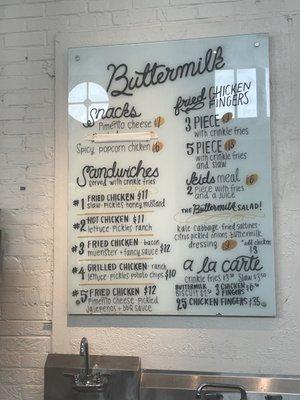 Buttermilk
snacks
Pimento cheese 7
Spicy popcorn chicken
Sandwiches
served with crinkle fries
#1 FRIED CHICKEN $11
slaw · pickles · honey mustard
#2 HOT CHICKEN $11
lettuce · pickles · ranch
#3 FRIED CHICKEN · bacon
muenster + fancy sauce $12
#4 GRILLED CHICKEN · ranch
lettuce · pickles · potato chips $10
#5 FRIED CHICKEN $12
Pimento cheese · pickled
jalapenos + bbq sauce
fried CHICKEN FINGERS
3 PIECE
with crinkle fries
5 PIECE
with crinkle fries
and slaw
kids meal
2 PIECE with fries
and a juice
THE Buttermilk SALAD!
kale · cabbage · fried saltines
citrus · pickled onions · buttermilk
dressing 9 *add chicken $3
a la carte
crinkle fries slaw
BUTTERMILK BISCUIT
3 CHICKEN FINGERS
25 CHICKEN FINGERS $35